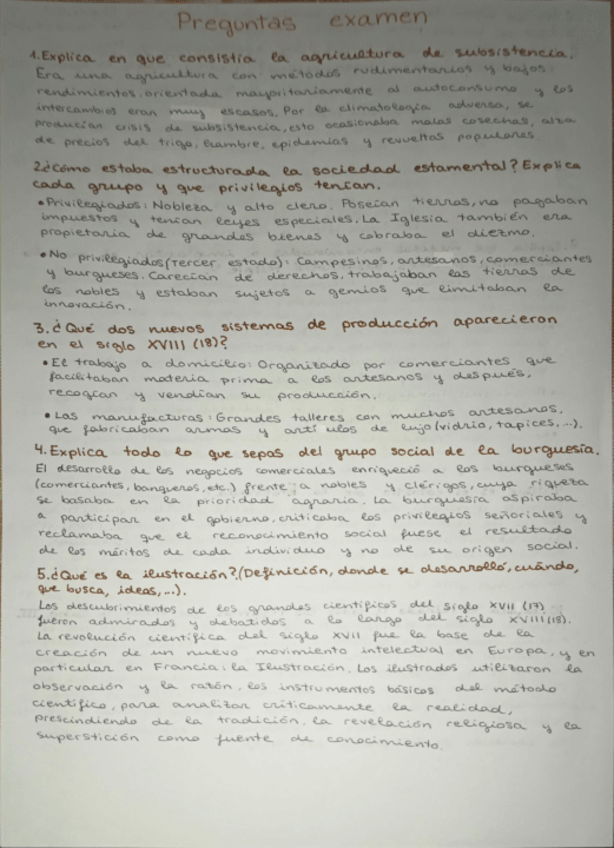 Preguntas examen
1. Explica en que consistía la agricultura de subsistencia.
Era una agricultura con métodos rudimentarios y bajos
rendimientos, orientada mayoritariamente al autoconsumo y los
intercambios eran muy escasos. Por la climatología adversa, se
producían crisis de subsistencia, esto ocasionaba malas cosechas, alza
de precios del trigo, hambre, epidemias y revueltas populares.
2. ¿Cómo estaba estructurada la sociedad estamental? Explica
cada grupo y que privilegios tenían.
• Privilegiados: Nobleza y alto clero. Poseían tierras, no pagaban
impuestos y tenían leyes especiales. La Iglesia también era
propietaria de grandes bienes y cobraba el diezmo.
• No privilegiados (tercer estado): Campesinos, artesanos, comerciantes
y burgueses. Carecían de derechos, trabajaban las tierras de
los nobles y estaban sujetos a gemios que limitaban la
innovación.
3. ¿Qué dos nuevos sistemas de producción aparecieron
en el siglo XVIII (18)?
• El trabajo a domicilio: Organizado por comerciantes que
facilitaban materia prima a los artesanos y después,
recogían y vendían su producción.
• Las manufacturas: Grandes talleres con muchos artesanos,
que fabricaban armas y artí ulos de lujo (vidrio, tapices, ...).
4. Explica todo lo que sepas del grupo social de la burguesía.
El desarrollo de los negocios comerciales enriqueció a los burgueses
(comerciantes, banqueros, etc.) frente a nobles y clérigos, cuya riqueza
se basaba en la prioridad agraria. La burguesía aspiraba
a participar en el gobierno, criticaba los privilegios señoriales y
reclamaba que el reconocimiento social fuese el resultado
de los méritos de cada individuo y no de su origen social.
5. ¿Qué es la ilustración? (Definición, donde se desarrolló, cuándo,
que busca, ideas, ...).
Los descubrimientos de los grandes científicos del siglo XVII (17)
fueron admirados y debatidos a lo largo del siglo XVIII (18).
La revolución científica del siglo XVII fue la base de la
creación de un nuevo movimiento intelectual en Europa, y en
particular en Francia: la Ilustración. Los ilustrados utilizaron la
observación y la razón, los instrumentos básicos del método
científico, para analizar críticamente la realidad,
prescindiendo de la tradición, la revelación religiosa y la
superstición como fuente de conocimiento.